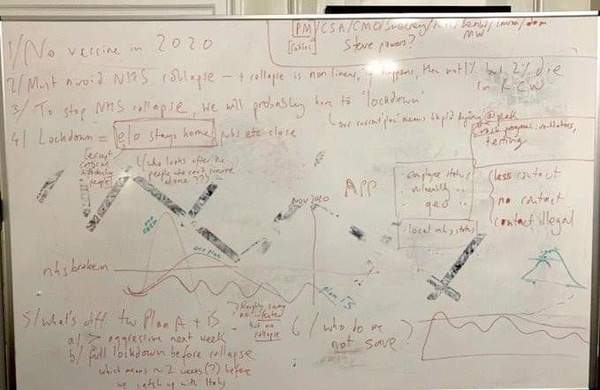 1/ No vaccine in 2020
PM/CSA/CMO
Steve Powers?
MW
2/ Must avoid NHS collapse - collapse is non linear, if happens, then not 1% but 2% die
in RCW
3/ To stop NHS collapse, we will probably have to "lockdown"
4/ Lockdown = e/o stays home, pubs etc close
our current 'plan' means
testing
(except
people)
(who looks after the
people who can't survive
alone??)
Nov 2020
APP
employee status
vulnerability "
geo "
local nhs status
less contact
no contact
contact illegal
our plan
nhs broken
plan B
5/ What's diff tw Plan A + B
a/ > aggressive next week
b/ full lockdown before collapse
which means ~ 2 weeks (?) before
we catch up with Italy
Roughly same
no infected
but no
collapse
6/ who do we
not save?